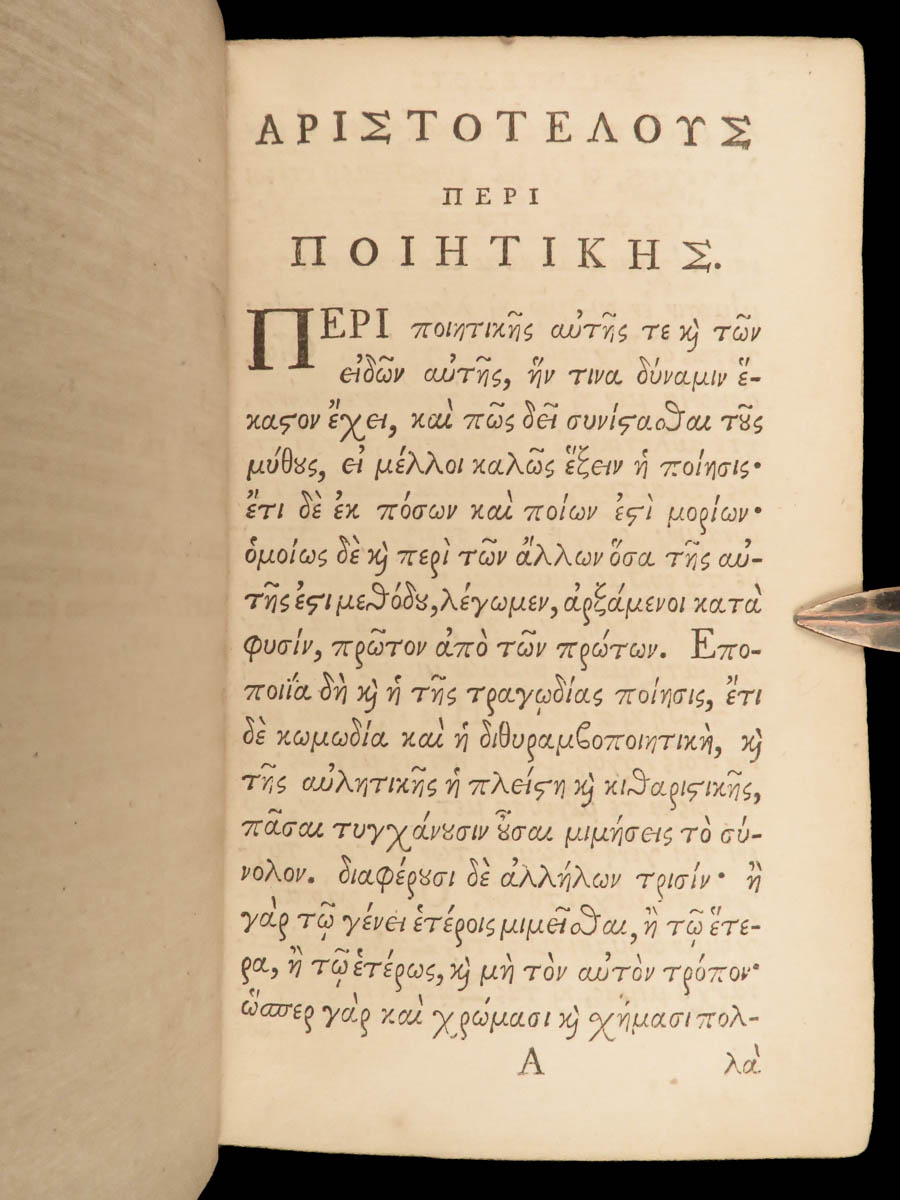 ΑΡΙΣΤΟΤΕΛΟΥΣ
ΠΕΡΙ
ΠΟΙΗΤΙΚΗΣ.
ΠΕΡΙ ποιητικῆς αὐτῆς τε ϗ̀ τῶν
εἰδῶν αὐτῆς, ἥν τινα δύναμιν ἕ-
καϛον ἔχει, καὶ πῶς δεῖ συνίϛασθαι τȣ̀ς
μύθȣς, εἰ μέλλοι καλῶς ἕξειν ἡ ποίησις·
ἔτι δὲ ἐκ πόσων καὶ ποίων ἐϛὶ μορίων·
ὁμοίως δὲ ϗ̀ περὶ τῶν ἄλλων ὅσα τῆς αὐ-
τῆς ἐϛι μεθόδȣ, λέγωμεν, ἀρξάμενοι κατὰ
φυσίν, πρῶτον ἀπὸ τῶν πρώτων. Επο-
ποιΐα δὴ ϗ̀ ἡ τῆς τραγῳδίας ποίησις, ἔτι
δὲ κωμωδία καὶ ἡ διθυραμβοποιητικὴ, ϗ̀
τῆς αὐλητικῆς ἡ πλείϛη ϗ̀ κιθαριϛικῆς,
πᾶσαι τυγχάνȣσιν ȣ̓͂σαι μιμήσεις τὸ σύ-
νολον. διαφέρȣσι δὲ ἀλλήλων τρισίν· ἢ
γὰρ τῷ γένει ἑτέροις μιμεῖσθαι, ἢ τῷ ἕτε-
ρα, ἢ τῷ ἑτέρως, ϗ̀ μὴ τὸν αὐτὸν τρόπον·
ὥσπερ γὰρ καὶ χρώμασι ϗ̀ σχήμασι πολ-
Α λὰ